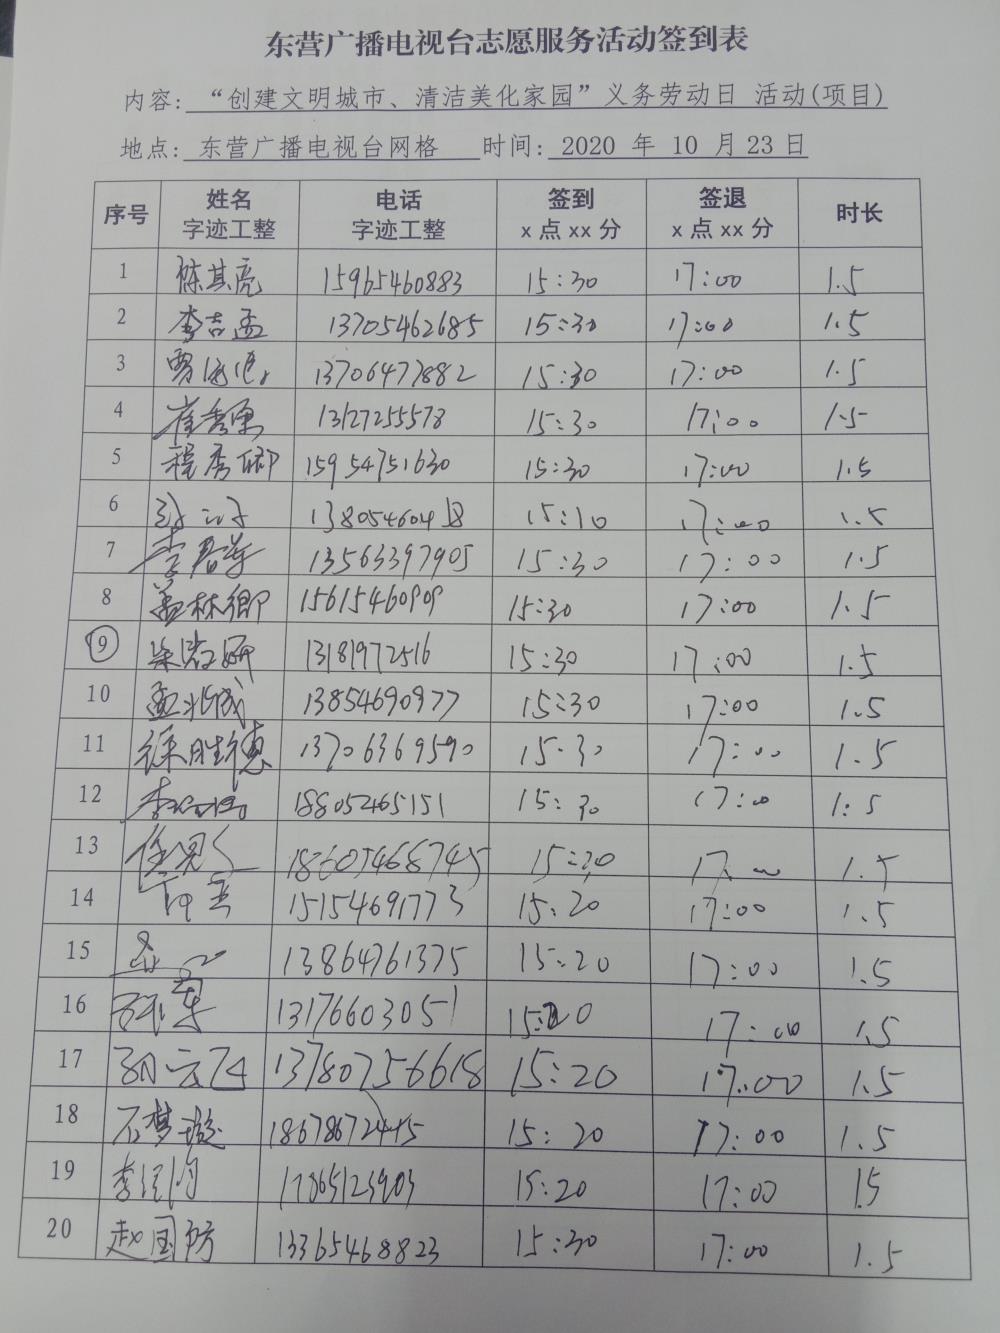 东营广播电视台志愿服务活动签到表
内容: “创建文明城市、清洁美化家园”义务劳动日 活动(项目)
地点: 东营广播电视台网格 时间: 2020 年 10 月 23 日
序号 姓名 字迹工整 电话 字迹工整 签到 x 点 xx 分 签退 x 点 xx 分 时长
1 陈其亮 15965460883 15:30 17:00 1.5
2 李吉孟 13705462685 15:30 17:00 1.5
3 13706477882 15:30 17:00 1.5
4 13127255578 15:30 17:00 1.5
5 程秀卿 15954751630 15:30 17:00 1.5
6 15:10 17:00 1.5
7 李春萍 13563397905 15:30 17:00 1.5
8 盖林卿 15615460909 15:30 17:00 1.5
9 13181972516 15:30 17:00 1.5
10 孟兆成 13854690977 15:30 17:00 1.5
11 徐胜德 13706369590 15.30 17:00 1.5
12 18805465151 15:30 17:00 1:5
13 18605468745 17:00 1.5
14 15154691773 15:20 17:00 1.5
15 13864761375 15:20 17:00 1.5
16 13176603051 15:20 17:00 1.5
17 13780756618 15:20 17:00 1.5
18 石梦璇 15:20 17:00 1.5
19 15:20 17:00 15
20 赵国防 13365468823 15:30 17:00 1.5